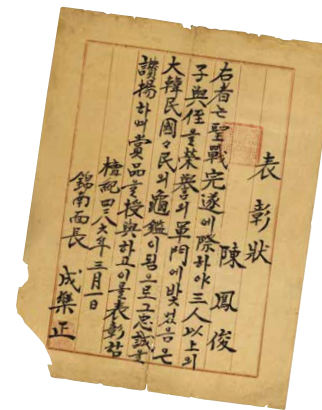 表彰狀
陳鳳俊
右者는聖戰完遂에際하야三人以上의
子與侄을榮譽의軍門에밧첫음은
大韓民國々民의龜鑑이됨으로그忠誠을
讚揚하며賞品을授與하고이를表彰함
檀紀四二八六年三月一日
錦南面長 成樂正